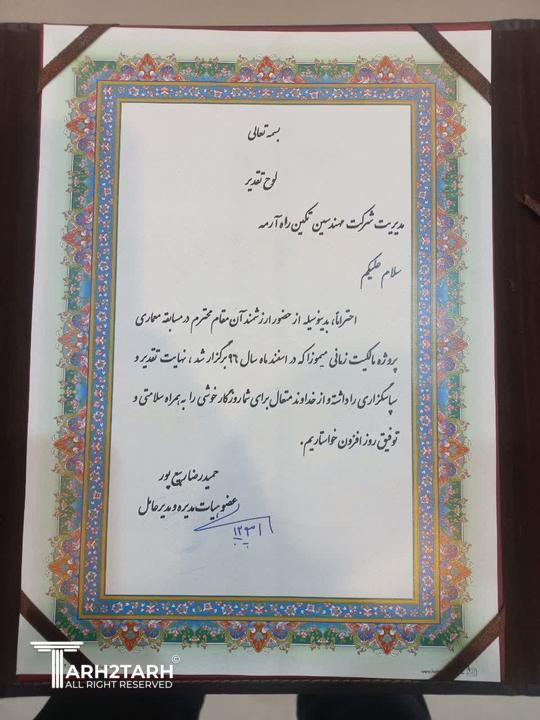 بسمه تعالی
لوح تقدیر
مدیریت شرکت مهندسین تکین راه آرمه
سلام علیکم
احتراما، بدینوسیله از حضور ارزشمند آن مقام محترم در مسابقه معماری
پروژه مالکیت زمانی میموزا که در اسفند ماه سال ۹۶ برگزار شد، نهایت تقدیر و
سپاسگزاری را داشته و از خداوند متعال برای شما روزگار خوشی را به همراه سلامتی و
توفیق روز افزون خواستاریم.
حمیدرضا ربیع پور
عضو هیات مدیره و مدیر عامل
TARH2TARH©
ALL RIGHT RESERVED